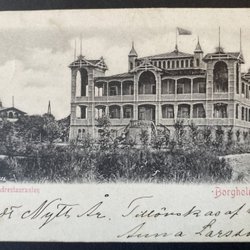 drestauranten Borghol
dt Nytt År, Tillönskas af
Anna Larss